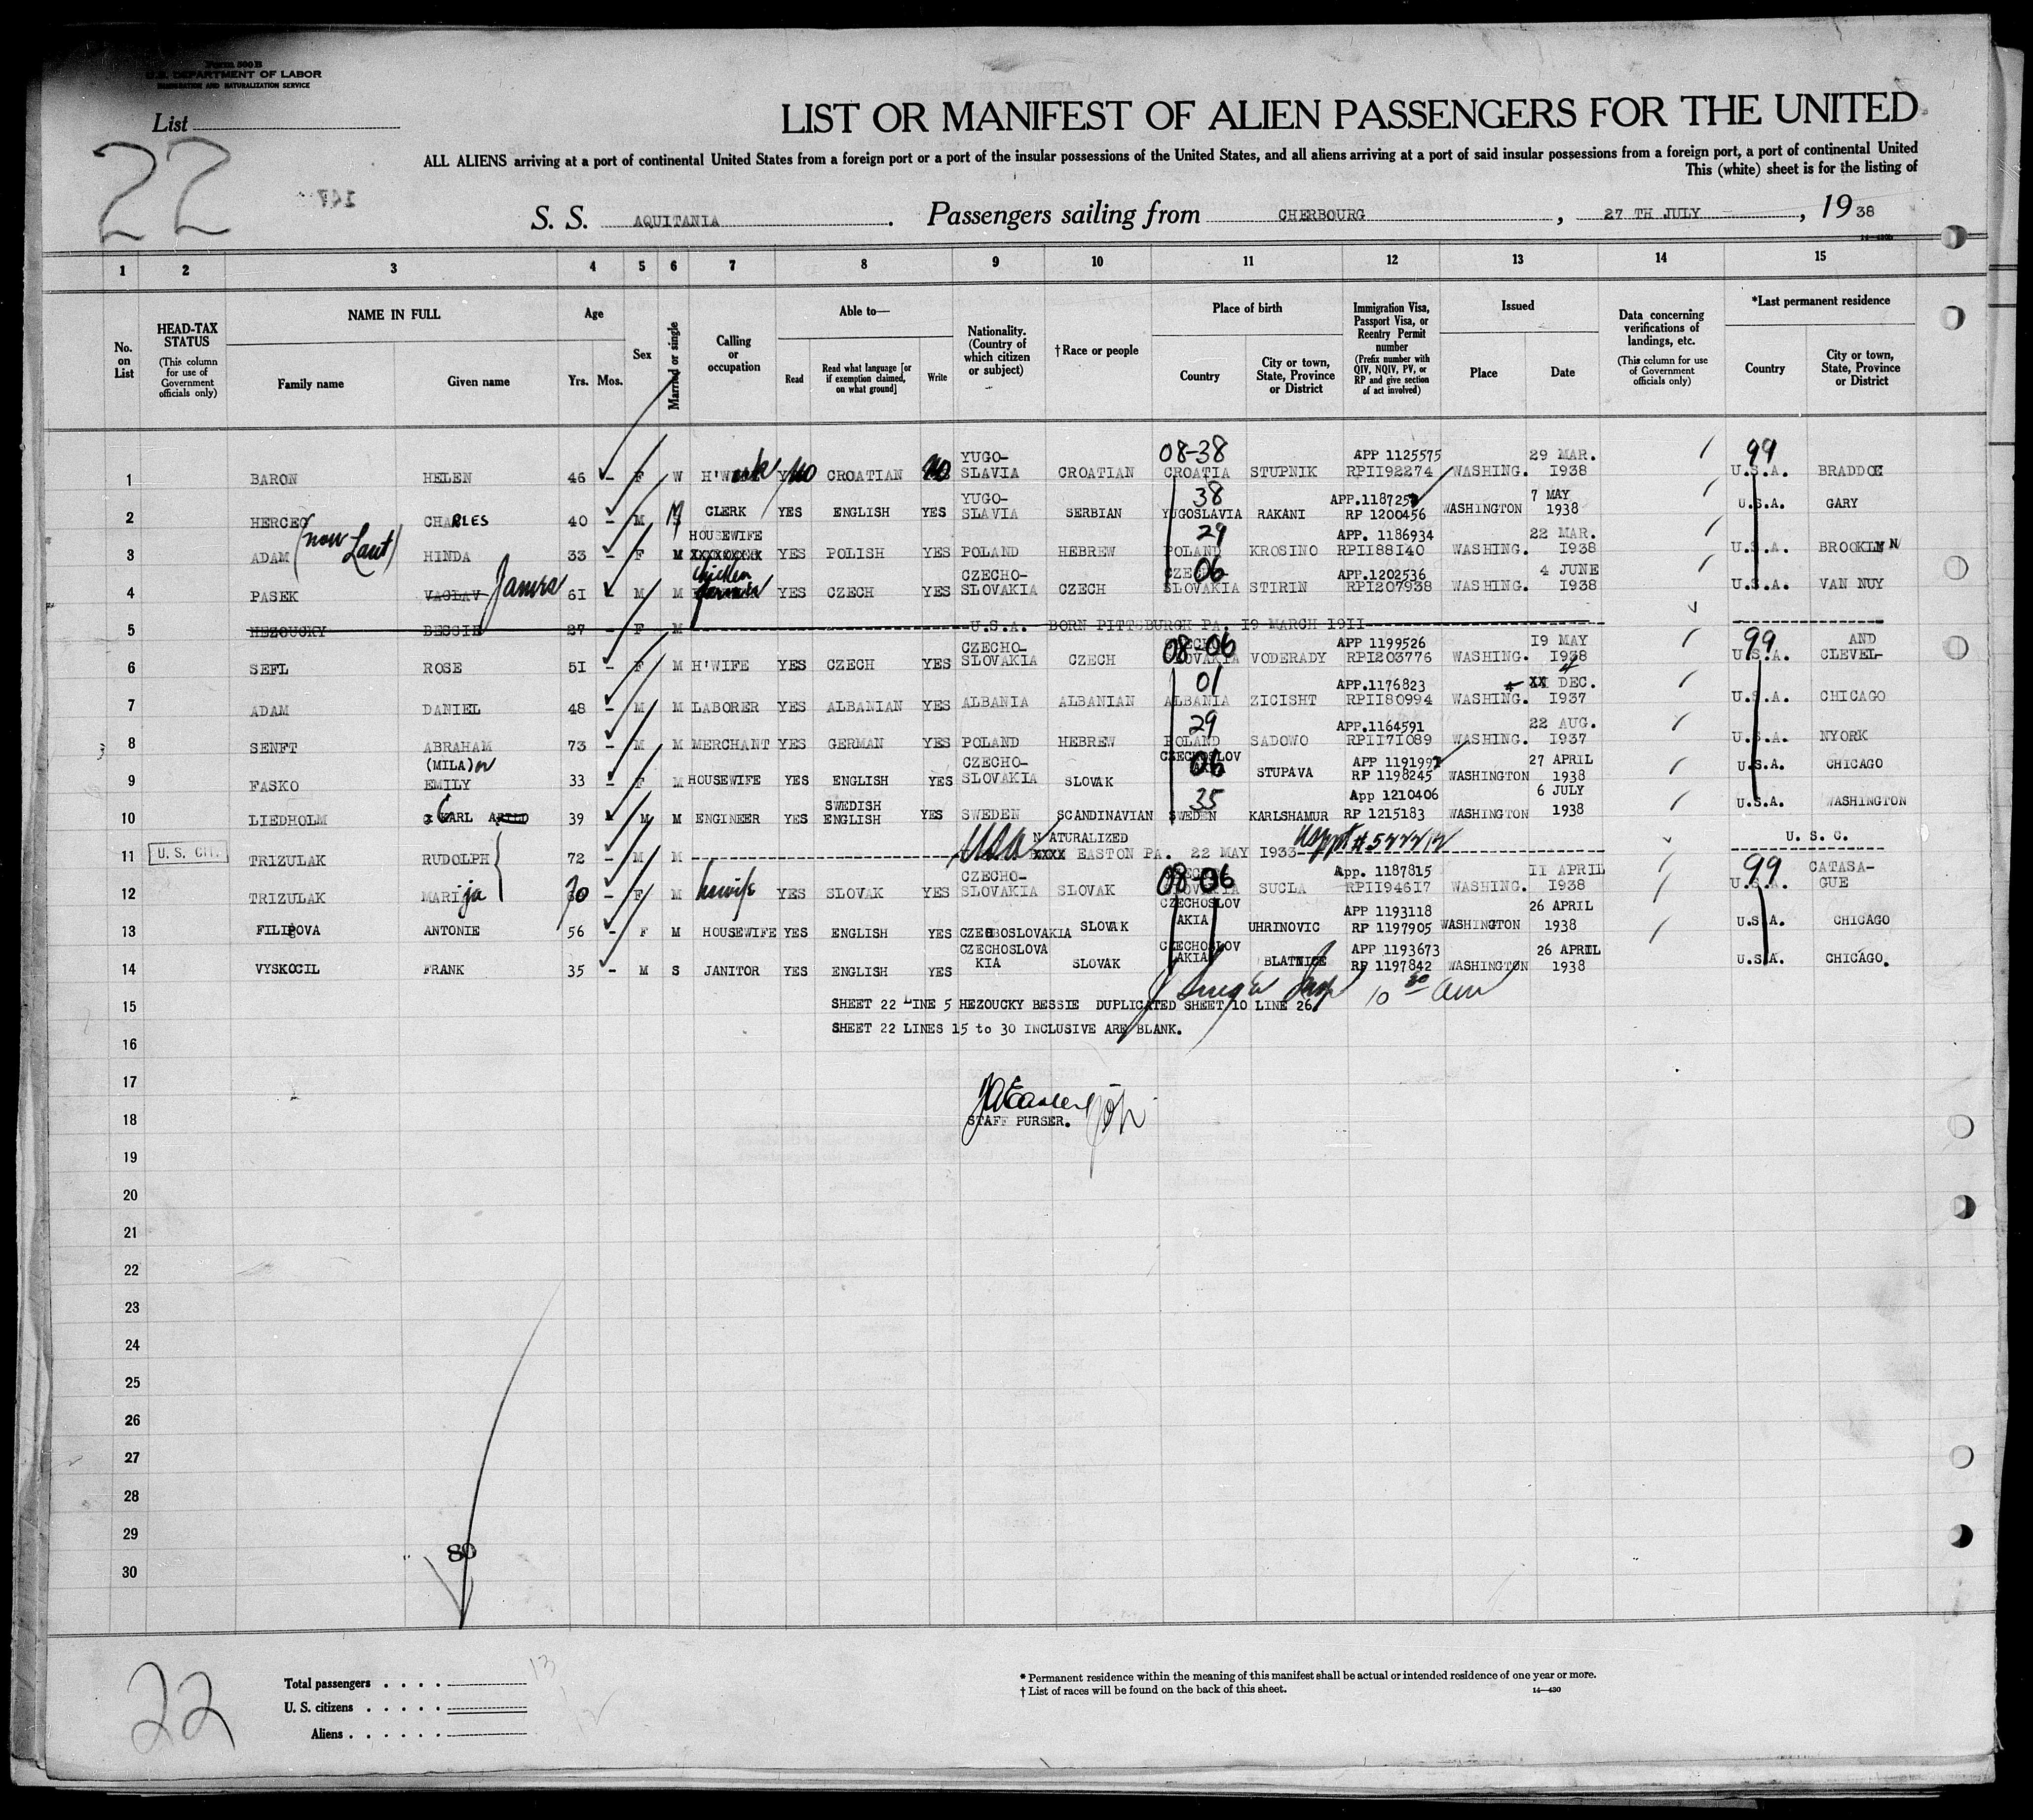 Form 500 B
U. S. DEPARTMENT OF LABOR
IMMIGRATION AND NATURALIZATION SERVICE
List
22
147
LIST OR MANIFEST OF ALIEN PASSENGERS FOR THE UNITED
ALL ALIENS arriving at a port of continental United States from a foreign port or a port of the insular possessions of the United States, and all aliens arriving at a port of said insular possessions from a foreign port, a port of continental United
This (white) sheet is for the listing of
S. S. AQUITANIA . Passengers sailing from CHERBOURG , 27 TH JULY , 19 38
1 2 3 4 5 6 7 8 9 10 11 12 13 14 15
No. on List
HEAD-TAX STATUS (This column for use of Government officials only)
NAME IN FULL Family name Given name
Age Yrs. Mos.
Sex
Married or single
Calling or occupation
Able to— Read Read what language [or if exemption claimed, on what ground] Write
Nationality. (Country of which citizen or subject)
†Race or people
Place of birth Country City or town, State, Province or District
Immigration Visa, Passport Visa, or Reentry Permit number (Prefix number with QIV, NQIV, PV, or RP and give section of act involved)
Issued Place Date
Data concerning verifications of landings, etc. (This column for use of Government officials only)
*Last permanent residence Country City or town, State, Province or District
1 BARON HELEN 46 - F W H'Work no CROATIAN no YUGO-SLAVIA CROATIAN 08-38 CROATIA STUPNIK APP 1125575 RPII92274 WASHING. 29 MAR. I938 99 U.S.A. BRADDOC
2 HERCEG CHARLES 40 - M M CLERK YES ENGLISH YES YUGO-SLAVIA SERBIAN 38 YUGOSLAVIA RAKANI APP.118725 RP 1200456 WASHINGTON 7 MAY 1938 U.S.A. GARY
3 ADAM (now Laut) HINDA 33 - F M HOUSEWIFE XXXXXXXX YES POLISH YES POLAND HEBREW 29 POLAND KROSINO APP. 1186934 RPII88I40 WASHING. 22 MAR. I938 U.S.A. BROOKLYN
4 PASEK VACLAV James 6I M M Chicken farmer YES CZECH YES CZECHO-SLOVAKIA CZECH 06 CZECHO SLOVAKIA STIRIN APP.1202536 RPI207938 WASHING. 4 JUNE I938 U.S.A. VAN NUY
5 HEZOUCKY BESSIE 27 - F M U.S.A. BORN PITTSBURGH PA. I9 MARCH I9II
6 SEFL ROSE 5I - F M H'WIFE YES CZECH YES CZECHO-SLOVAKIA CZECH 08-06 SLOVAKIA VODERADY APP 1199526 RPI203776 WASHING. I9 MAY I938 99 U.S.A. AND CLEVEL-
7 ADAM DANIEL 48 - M M LABORER YES ALBANIAN YES ALBANIA ALBANIAN 01 ALBANIA ZICISHT APP.1176823 RPII80994 WASHING. XX 4 DEC. I937 U.S.A. CHICAGO
8 SENFT ABRAHAM 73 - M M MERCHANT YES GERMAN YES POLAND HEBREW 29 POLAND SADOWO APP.1164591 RPII7I089 WASHING. 22 AUG. I937 U.S.A. NYORK
9 FASKO (MILA) or EMILY 33 - F M HOUSEWIFE YES ENGLISH YES CZECHO-SLOVAKIA SLOVAK CZECHOSLOV AKIA 06 STUPAVA APP 1191997 RP 1198245 WASHINGTON 27 APRIL 1938 U.S.A. CHICAGO
10 LIEDHOLM CARL 39 - M M ENGINEER YES SWEDISH ENGLISH YES SWEDEN SCANDINAVIAN 35 SWEDEN KARLSHAMUR App 1210406 RP 1215183 WASHINGTON 6 JULY 1938 U.S.A. WASHINGTON
11 U. S. CIT. TRIZULAK RUDOLPH 72 - M M USA NATURALIZED XXXX EASTON PA. 22 MAY I933 U. S. C.
12 TRIZULAK MARIja 70 - F M houwife YES SLOVAK YES CZECHO-SLOVAKIA SLOVAK 08-06 SLOVAKIA SUCLA App. 1187815 RPII946I7 WASHING. II APRIL I938 99 U.S.A. CATASA-GUE
13 FILIPOVA ANTONIE 56 - F M HOUSEWIFE YES ENGLISH YES CZECHOSLOVAKIA SLOVAK CZECHOSLOV AKIA UHRINOVIC APP 1193118 RP 1197905 WASHINGTON 26 APRIL 1938 U.S.A. CHICAGO
14 VYSKOCIL FRANK 35 - M S JANITOR YES ENGLISH YES CZECHOSLOVA KIA SLOVAK CZECHOSLOV AKIA BLATNICE APP 1193673 RP 1197842 WASHINGTON 26 APRIL 1938 U.S.A. CHICAGO.
10 30 am
15 SHEET 22 LINE 5 HEZOUCKY BESSIE DUPLICATED SHEET 10 LINE 26.
SHEET 22 LINES 15 to 30 INCLUSIVE ARE BLANK.
16
17
18 STAFF PURSER.
19
20
21
22
23
24
25
26
27
28
29
80
30
22
Total passengers . . . . 13
U. S. citizens . . . . .
Aliens . . . . . . 12
* Permanent residence within the meaning of this manifest shall be actual or intended residence of one year or more.
† List of races will be found on the back of this sheet. 14—430